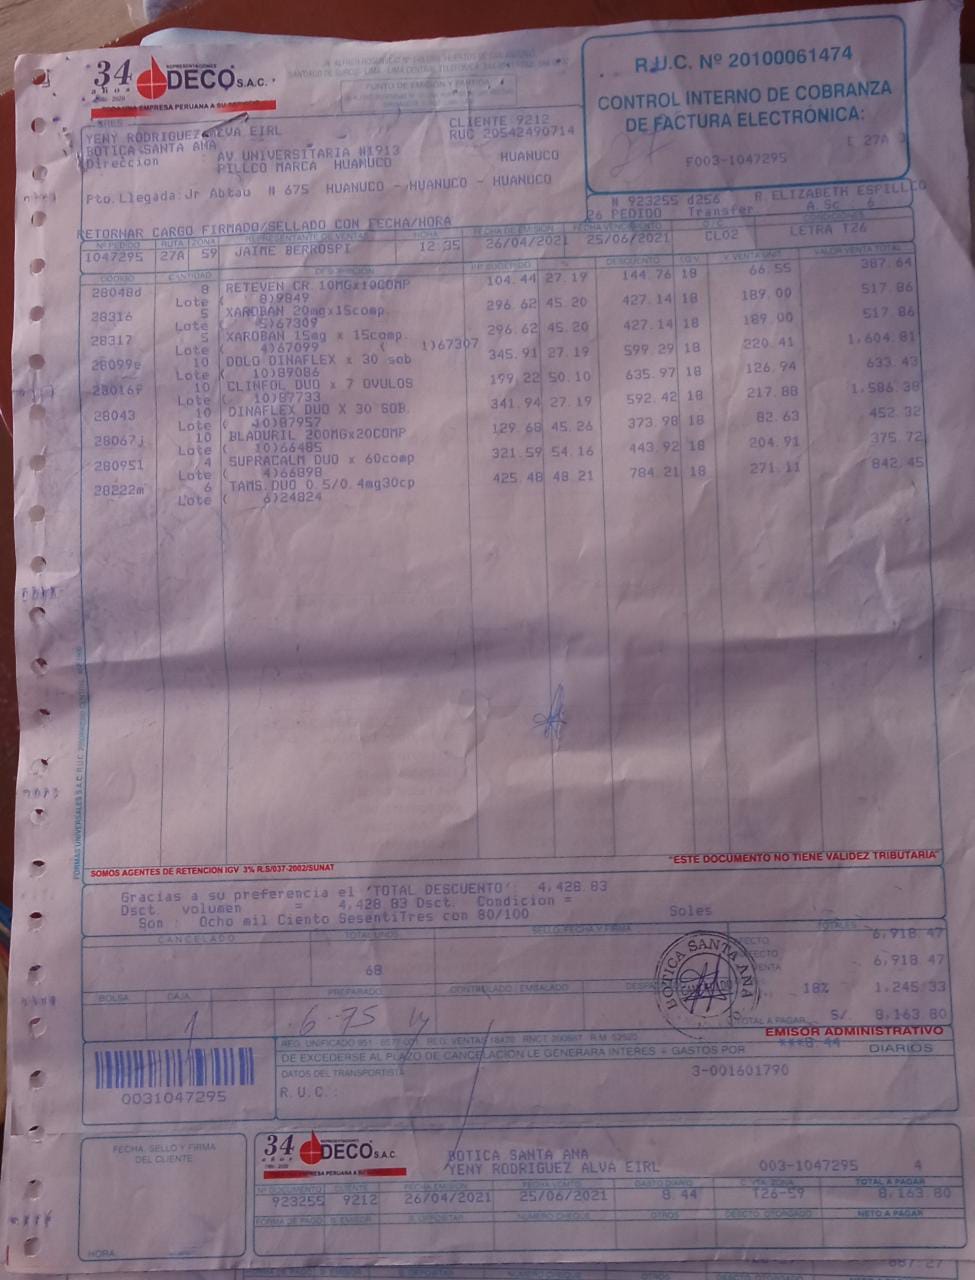 34 años
REPRESENTACIONES
DECO S.A.C.
PUNTO DE EMISION Y PARTIDA
R.U.C. Nº 20100061474
CONTROL INTERNO DE COBRANZA
DE FACTURA ELECTRÓNICA:
[ 27A ]
F003-1047295
YENY RODRIGUEZ ALVA EIRL CLIENTE 9212
BOTICA SANTA ANA RUC 20542490714
Direccion AV UNIVERSITARIA N1913 HUANUCO
PILLCO MARCA HUANUCO
Pto. Llegada: Jr Abtao N 675 HUANUCO - HUANUCO - HUANUCO
N 923255 d256 R.ELIZABETH ESPILLCO
26 PEDIDO Transfer. A.Sc 6
RETORNAR CARGO FIRMADO/SELLADO CON FECHA/HORA
Nº PEDIDO RUTA ZONA REPRESENTANTE DE VENTAS HORA FECHA DE EMISIÓN FECHA VENCIMIENTO O/C CONDICIONES
1047295 27A 59 JAIME BERROSPI 12:35 26/04/2021 25/06/2021 CL02 LETRA T26
CÓDIGO CANTIDAD DESCRIPCIÓN P.P. SUGERIDO % DESCUENTO I.G.V. V. VENTA UNIT. VALOR VENTA TOTAL
28048d 8 RETEVEN CR.10MGx10COMP 104.44 27.19 144.76 18 66.55 387.64
Lote ( 8)9849
28316 5 XAROBAN 20mgx15comp. 296.62 45.20 427.14 18 189.00 517.86
Lote ( 5)67309
28317 5 XAROBAN 15mg x 15comp. 296.62 45.20 427.14 18 189.00 517.86
Lote ( 4)67099 ( 1)67307
28099e 10 DOLO DINAFLEX x 30 sob 345.91 27.19 599.29 18 220.41 1,604.81
Lote ( 10)89086
28016f 10 CLINFOL DUO x 7 OVULOS 199.22 50.10 635.97 18 126.94 633.43
Lote ( 10)87733
28043 10 DINAFLEX DUO X 30 SOB. 341.94 27.19 592.42 18 217.88 1,586.38
Lote ( 10)87957
28067j 10 BLADURIL 200MGx20COMP 129.68 45.26 373.98 18 82.63 452.32
Lote ( 10)66485
280951 4 SUPRACALM DUO x 60comp 321.59 54.16 443.92 18 204.91 375.72
Lote ( 4)66898
28222m 6 TAMS.DUO 0.5/0.4mg30cp 425.48 48.21 784.21 18 271.11 842.45
Lote ( 6)24824
SOMOS AGENTES DE RETENCION IGV 3% R.S/037-2002/SUNAT
"ESTE DOCUMENTO NO TIENE VALIDEZ TRIBUTARIA"
Gracias a su preferencia el 'TOTAL DESCUENTO': 4,428.83
Dsct. volumen = 4,428.83 Dsct. Condicion =
Son : Ocho mil Ciento SesentiTres con 80/100 Soles
CANCELADO TOTAL UNDS. SELLO, FECHA Y FIRMA TOTALES
68
6,918.47
6,918.47
18% 1,245.33
TOTAL A PAGAR S/. 8,163.80
BOTICA SANTA ANA
BOLSA CAJA PREPARADO CONTROLADO / EMBALADO
1 6-75
EMISOR ADMINISTRATIVO
DE EXCEDERSE AL PLAZO DE CANCELACION LE GENERARA INTERES + GASTOS POR ***8.44 DIARIOS
DATOS DEL TRANSPORTISTA 3-001601790
R.U.C.:
0031047295
FECHA, SELLO Y FIRMA
DEL CLIENTE
HORA:
34 años
REPRESENTACIONES
DECO S.A.C.
BOTICA SANTA ANA
YENY RODRIGUEZ ALVA EIRL 003-1047295 4
Nº DOCUMENTO CLIENTE FECHA EMISIÓN FECHA VCMTO. GASTO DIARIO C. VTA. ZONA TOTAL A PAGAR
923255 9212 26/04/2021 25/06/2021 8.44 T26-59 8,163.80
FORMA DE PAGO B. EMISOR B. DEPOSITAR NÚMERO CHEQUE OTROS DSCTO. OTORGADO NETO A PAGAR